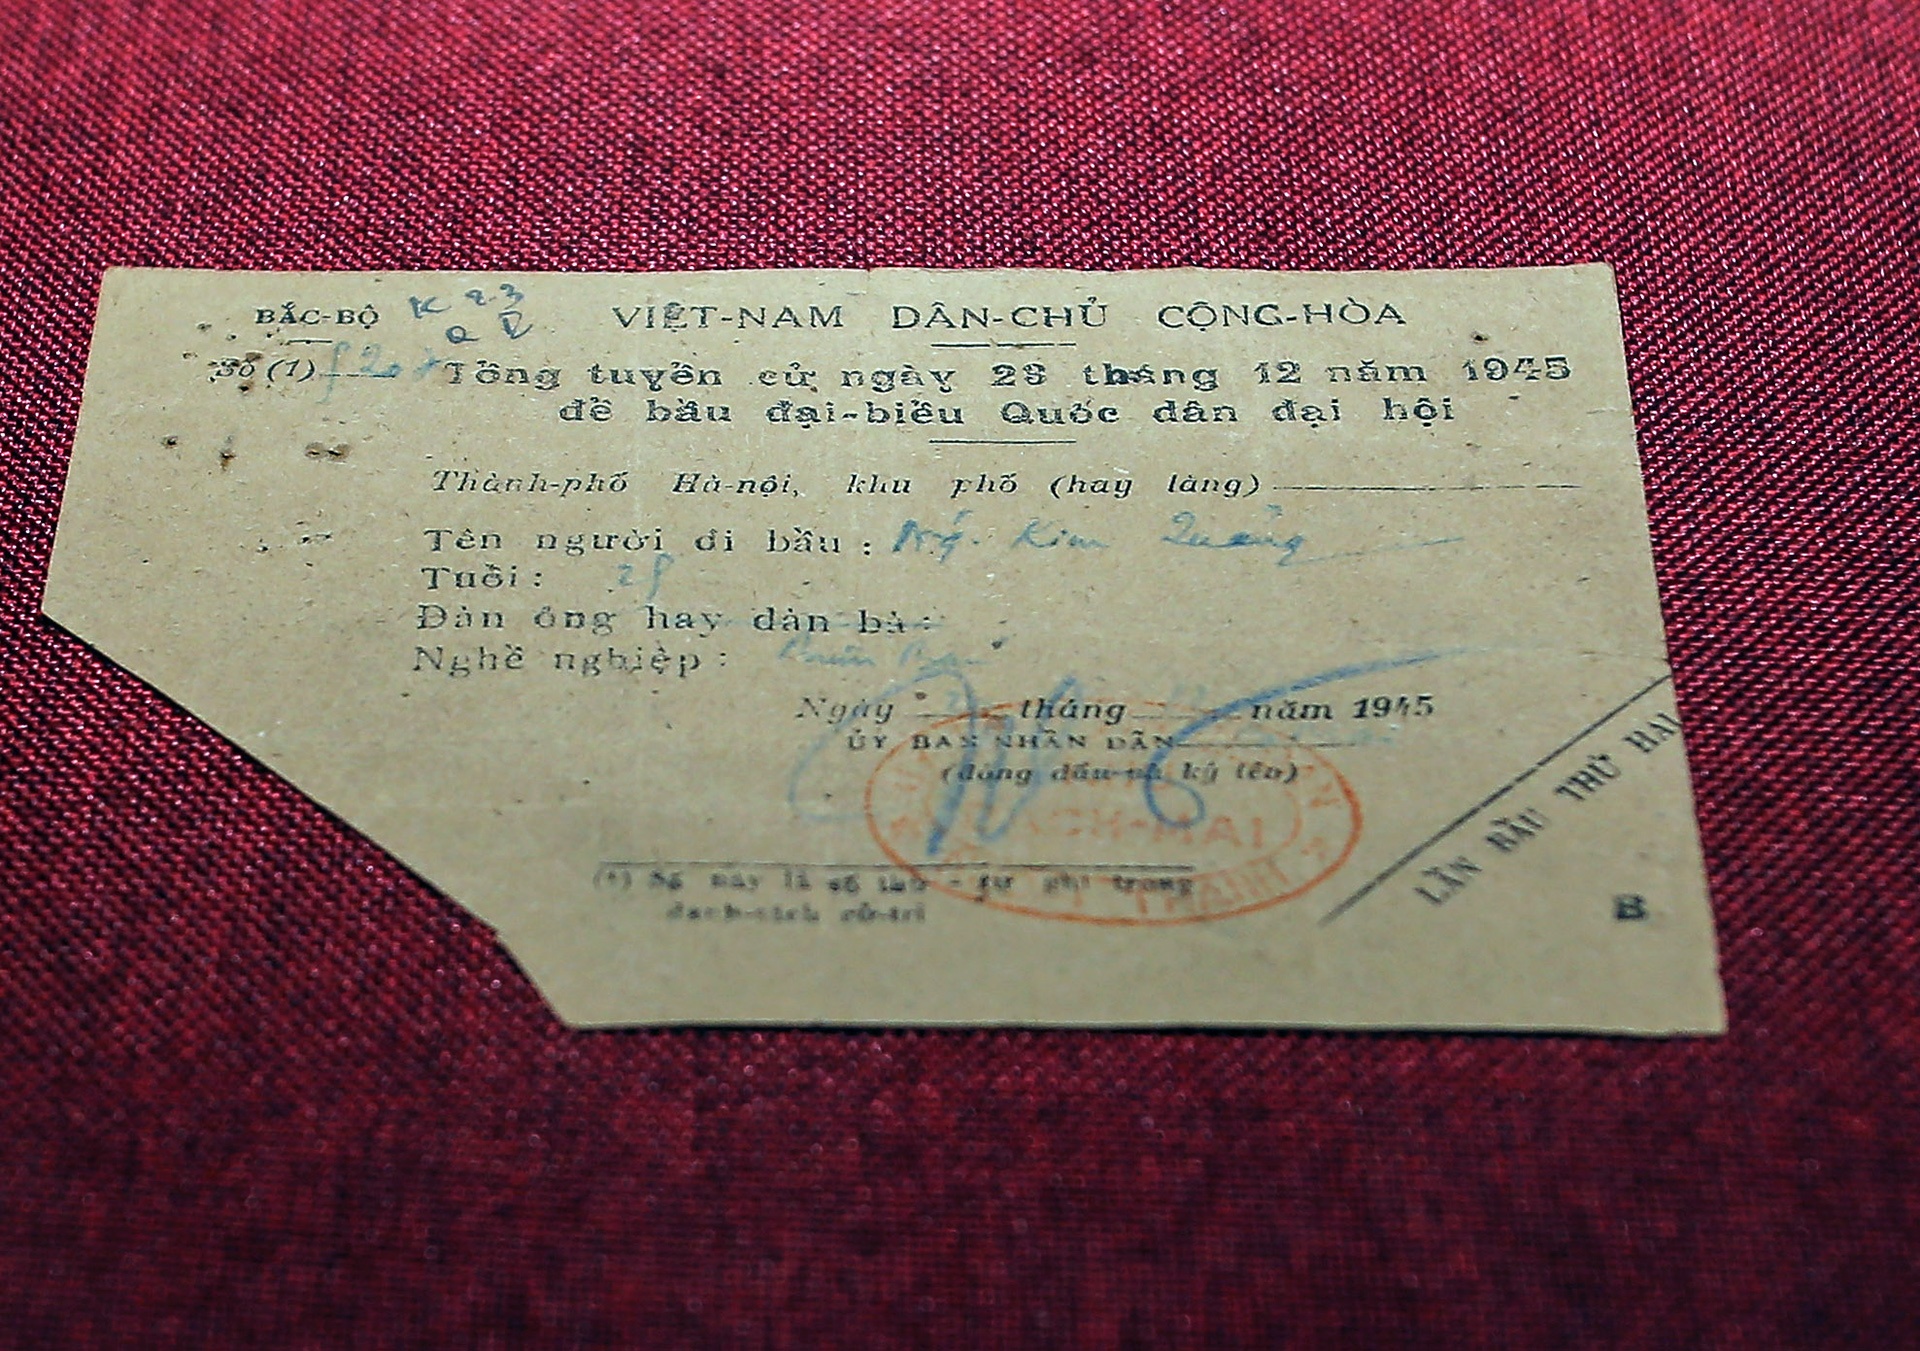 BẮC-BỘ K 23
VIỆT-NAM DÂN-CHỦ CỘNG-HÒA
Số (1)
Tổng tuyển cử ngày 23 tháng 12 năm 1945
để bầu đại-biểu Quốc dân đại hội
Thành-phố Hà-nội, khu phố (hay làng)
Tên người đi bầu : Kim Quảng
Tuổi :
Đàn ông hay đàn bà :
Nghề nghiệp :
Ngày tháng năm 1945
ỦY BAN NHÂN DÂN
(đóng dấu và ký tên)
(1) Số này là số thứ - tự ghi trong
danh-sách cử-tri
LẦN BẦU THỨ HAI
B